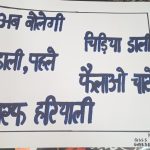 अब बोलेगी
चिड़िया डाली
डाली, पहले
फैलाओ चारों
तरफ हरियाली